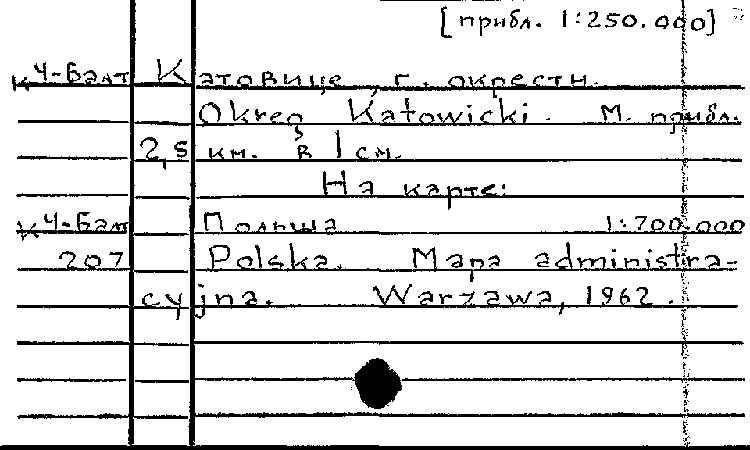 [прибл. 1:250.000]
К4-Балт Катовице, г. окрестн.
Okreg Katowicki. М. прибл.
2,5 км. в 1 см.
На карте:
К4-Балт Польша 1:700.000
207 Polska. Mapa administra-
cyjna. Warzawa, 1962.